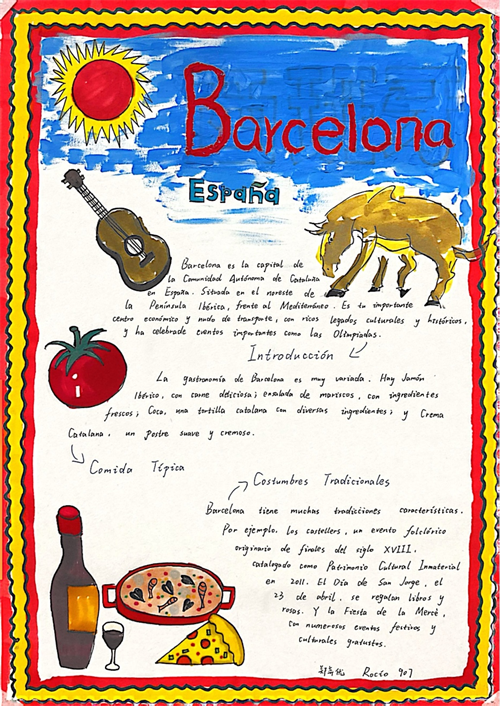 Barcelona
España
Barcelona es la capital de
la Comunidad Autónoma de Cataluña
en España. Situada en el noreste de
la Península Ibérica, frente al Mediterráneo. Es un importante
centro económico y nudo de transporte, con ricos legados culturales y históricos,
y ha celebrado eventos importantes como las Olimpiadas.
Introducción
La gastronomía de Barcelona es muy variada. Hay Jamón
Ibérico, con carne deliciosa; ensalada de mariscos, con ingredientes
frescos; Coca, una tortilla catalana con diversas ingredientes; y Crema
Catalana, un postre suave y cremoso.
Comida Típica
Costumbres Tradicionales
Barcelona tiene muchas tradiciones características.
Por ejemplo. los castellers, un evento folclórico
originario de finales del siglo XVIII,
catalogado como Patrimonio Cultural Inmaterial
en 2011. El Día de San Jorge, el
23 de abril, se regalan libros y
rosas. Y la Fiesta de la Mercè,
con numerosos eventos festivos y
culturales gratuitos.
Rocío 907